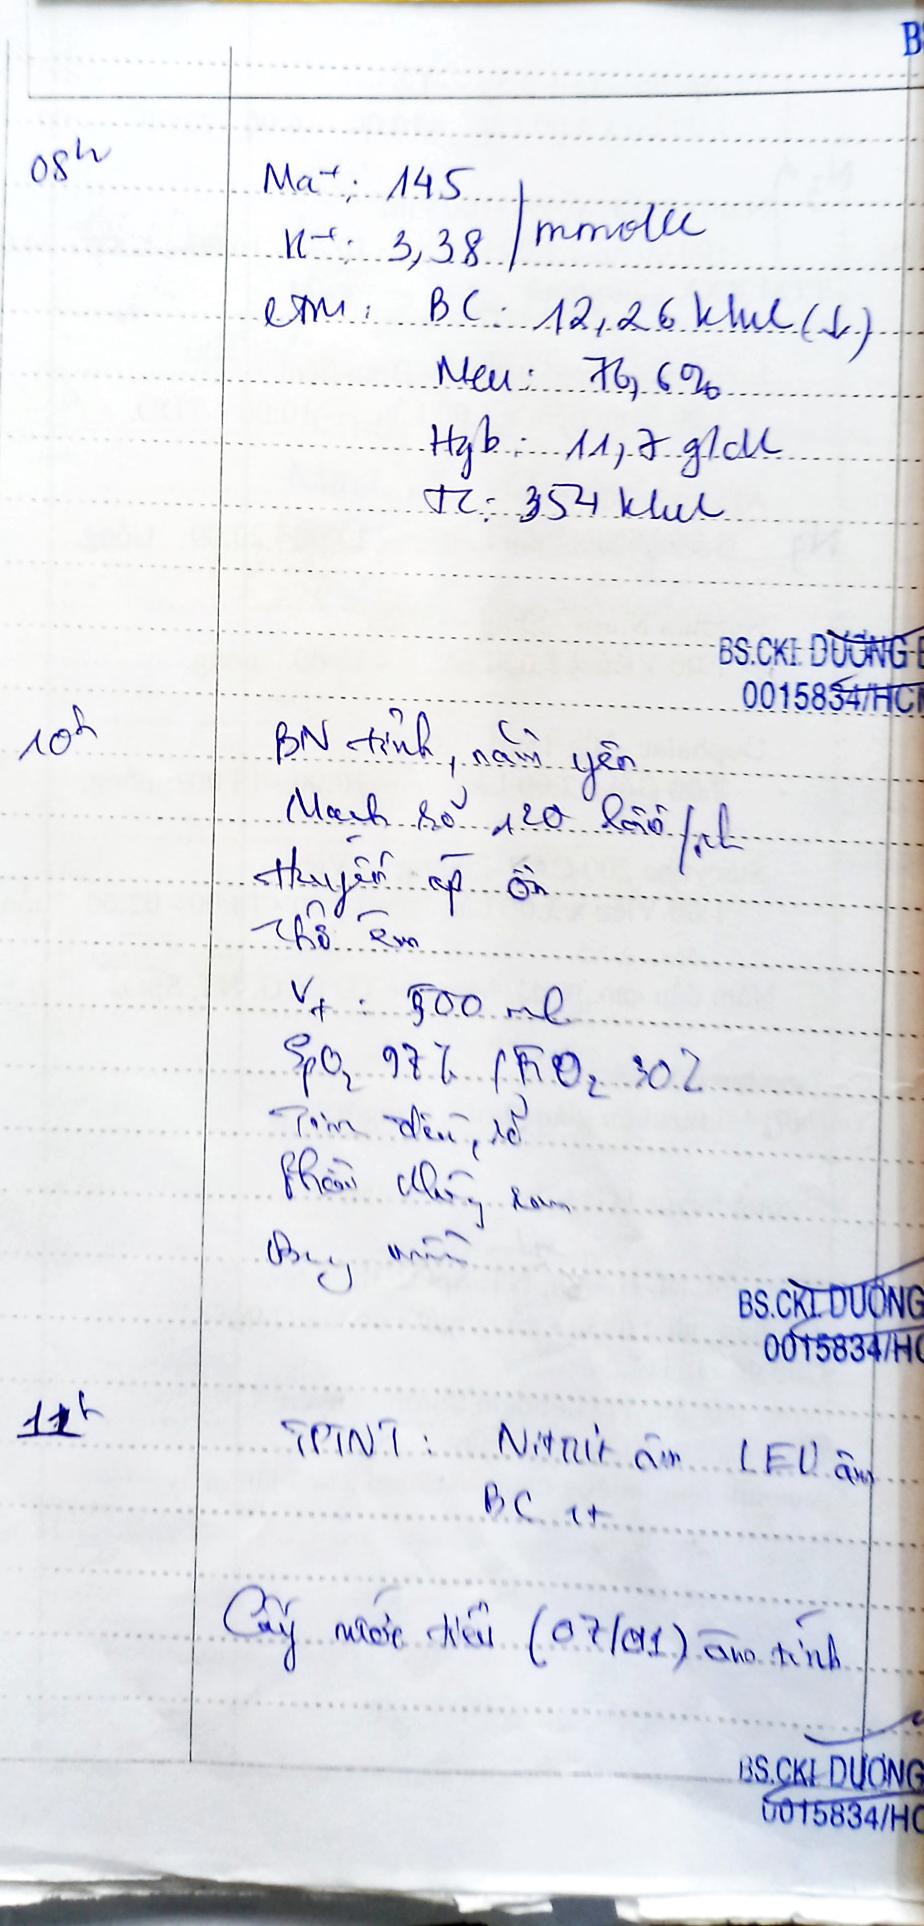 B
08h
Na+: 145
K+: 3,38 / mmol/L
CTM: BC: 12,26 k/uL (↓)
Neu: 76,6%
Hgb: 11,7 g/dL
TC: 354 k/uL
BS.CKI. DƯƠNG
0015834/HCM
10h
BN tỉnh, nằm yên
Mạch rõ 120 lần/ph
Huyết áp ổn
Thở êm
Vt: 500 ml
SpO2 97% / FiO2 30%
Tim đều, rõ
Phổi không ran
Bụng mềm
BS.CKI. DƯƠNG
0015834/HC
11h
TPTNT: Nitrit âm LEU âm
BC 1+
Cấy nước tiểu (07/01) âm tính
BS.CKI. DƯƠNG
0015834/HC